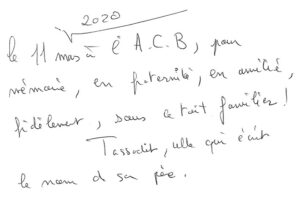 2020
le 11 mars à l'A.C.B, pour
mémoire, en fraternité, en amitié,
fidèlement, sous ce toit familier !
Tassadit, celle qui écrit
le nom d son père.